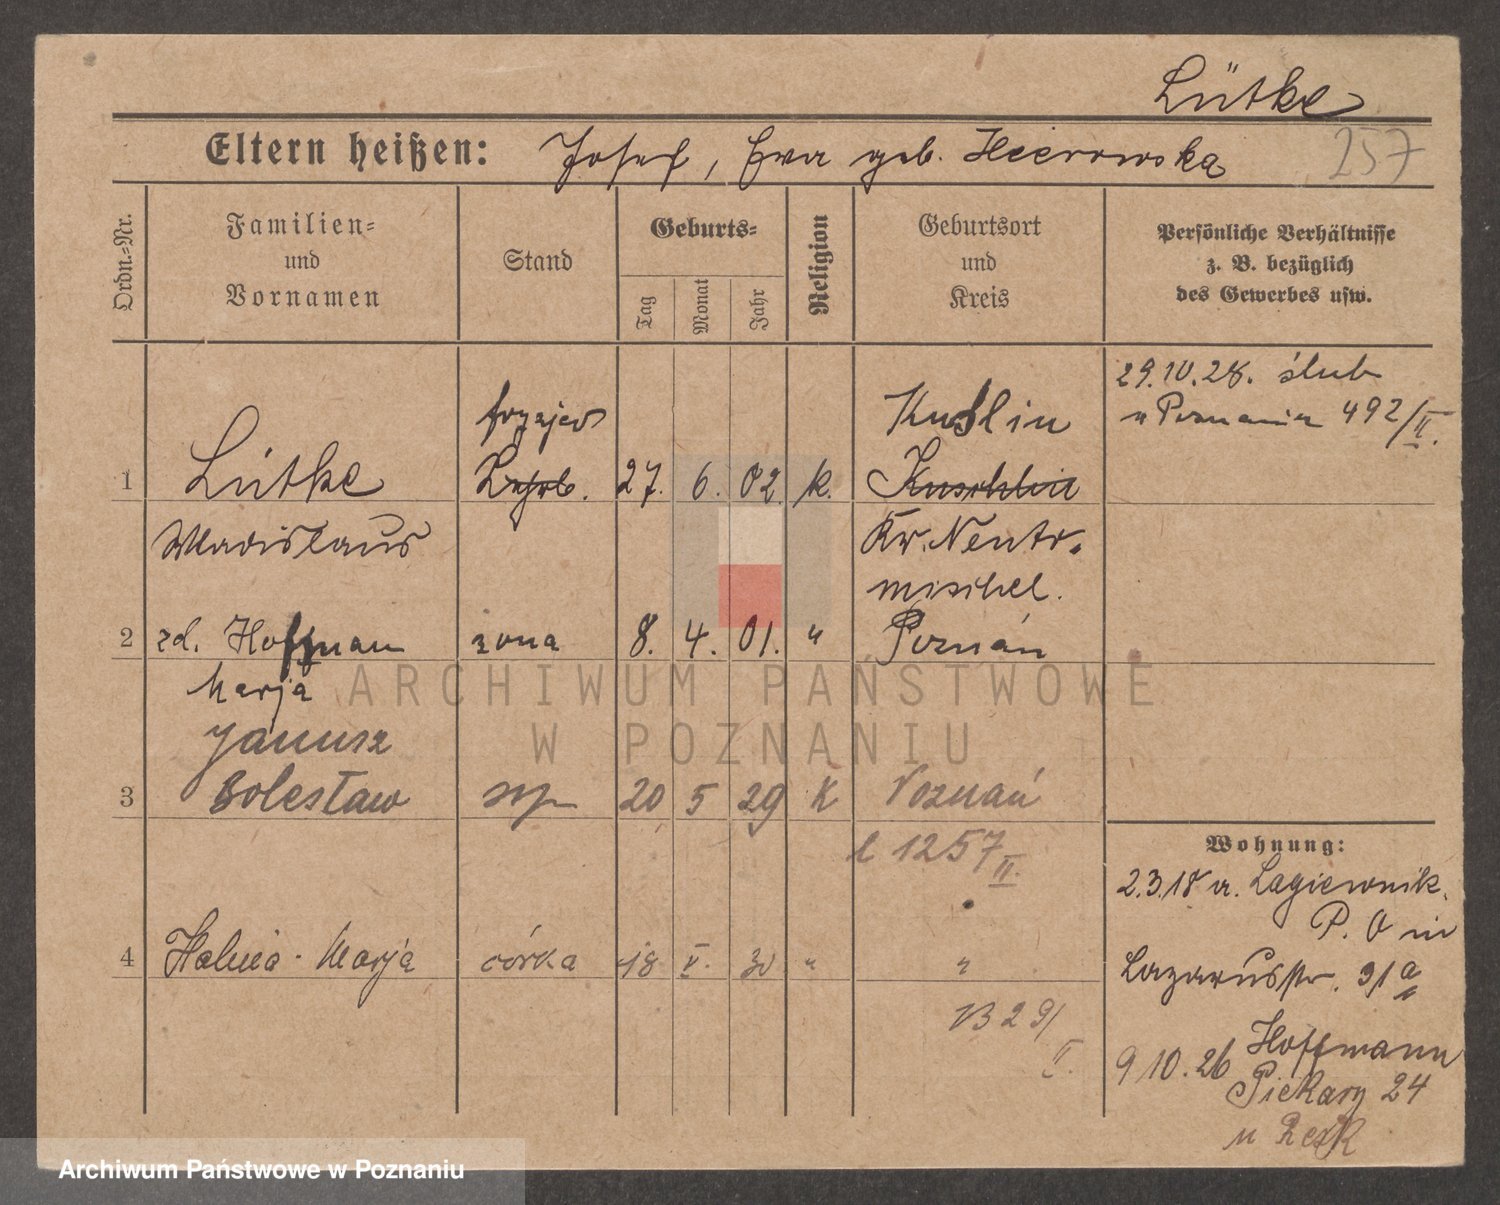 Lütke
Eltern heißen: Josef, Eva geb. Hierowska
257
Ordn.-Nr.
Familien- und Vornamen
Stand
Geburts-
Tag
Monat
Jahr
Religion
Geburtsort und Kreis
Persönliche Verhältnisse z. B. bezüglich des Gewerbes usw.
29.10.28. ślub
w Poznaniu 492/II.
fryzjer
Kuślin
1 Lütke 27. 6. 02. k. Kuschlin
Wladislaus Kr. Neuto-
mischel.
2 zd. Hoffman żona 8. 4. 01. " Poznań
Marja
Janusz
3 Bolesław syn 20 5 29 K Poznań
l 1257 II.
Wohnung:
2.3.18 a. Lagiewnik.
P. O in
4 Halina-Marja córka 18 V. 30 " "
Lazarusstr. 31a
B 29/II.
9 10.26 Hoffmann
Piekary 24
ARCHIWUM PAŃSTWOWE
W POZNANIU
Archiwum Państwowe w Poznaniu